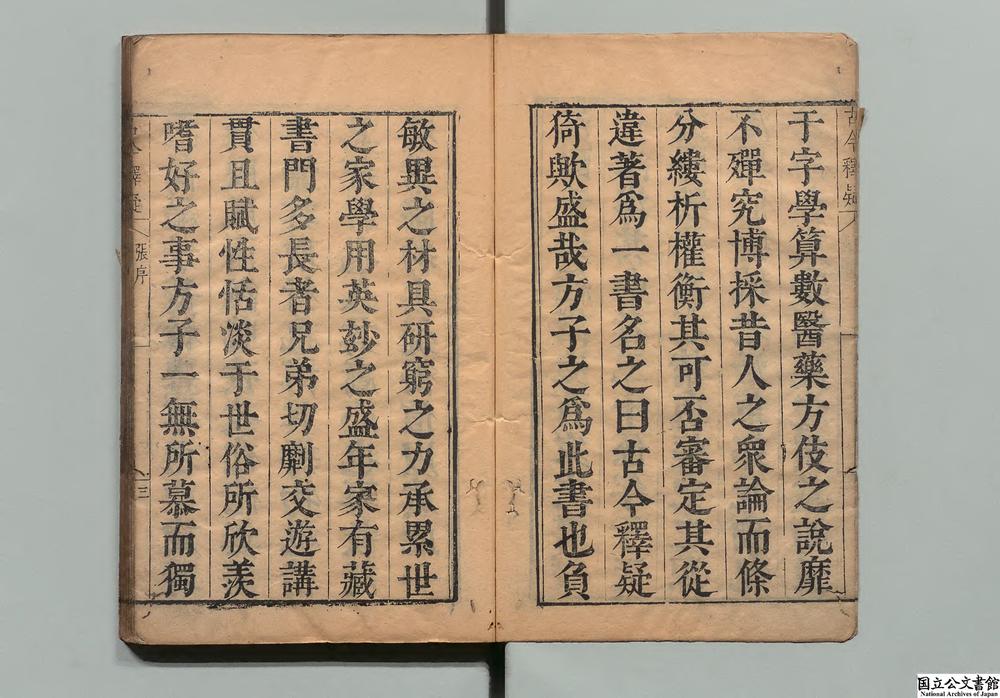 于字學算數醫藥方伎之說靡
不殫究博採昔人之衆論而條
分縷析權衡其可否審定其從
違著爲一書名之曰古今釋疑
倚歟盛哉方子之爲此書也負
敏異之材具研窮之力承累世
之家學用英玅之盛年家有藏
書門多長者兄弟切劘交遊講
貫且賦性恬淡于世俗所欣羨
嗜好之事方子一無所慕而獨
古今釋疑
釋疑
張序
三
国立公文書館
National Archives of Japan